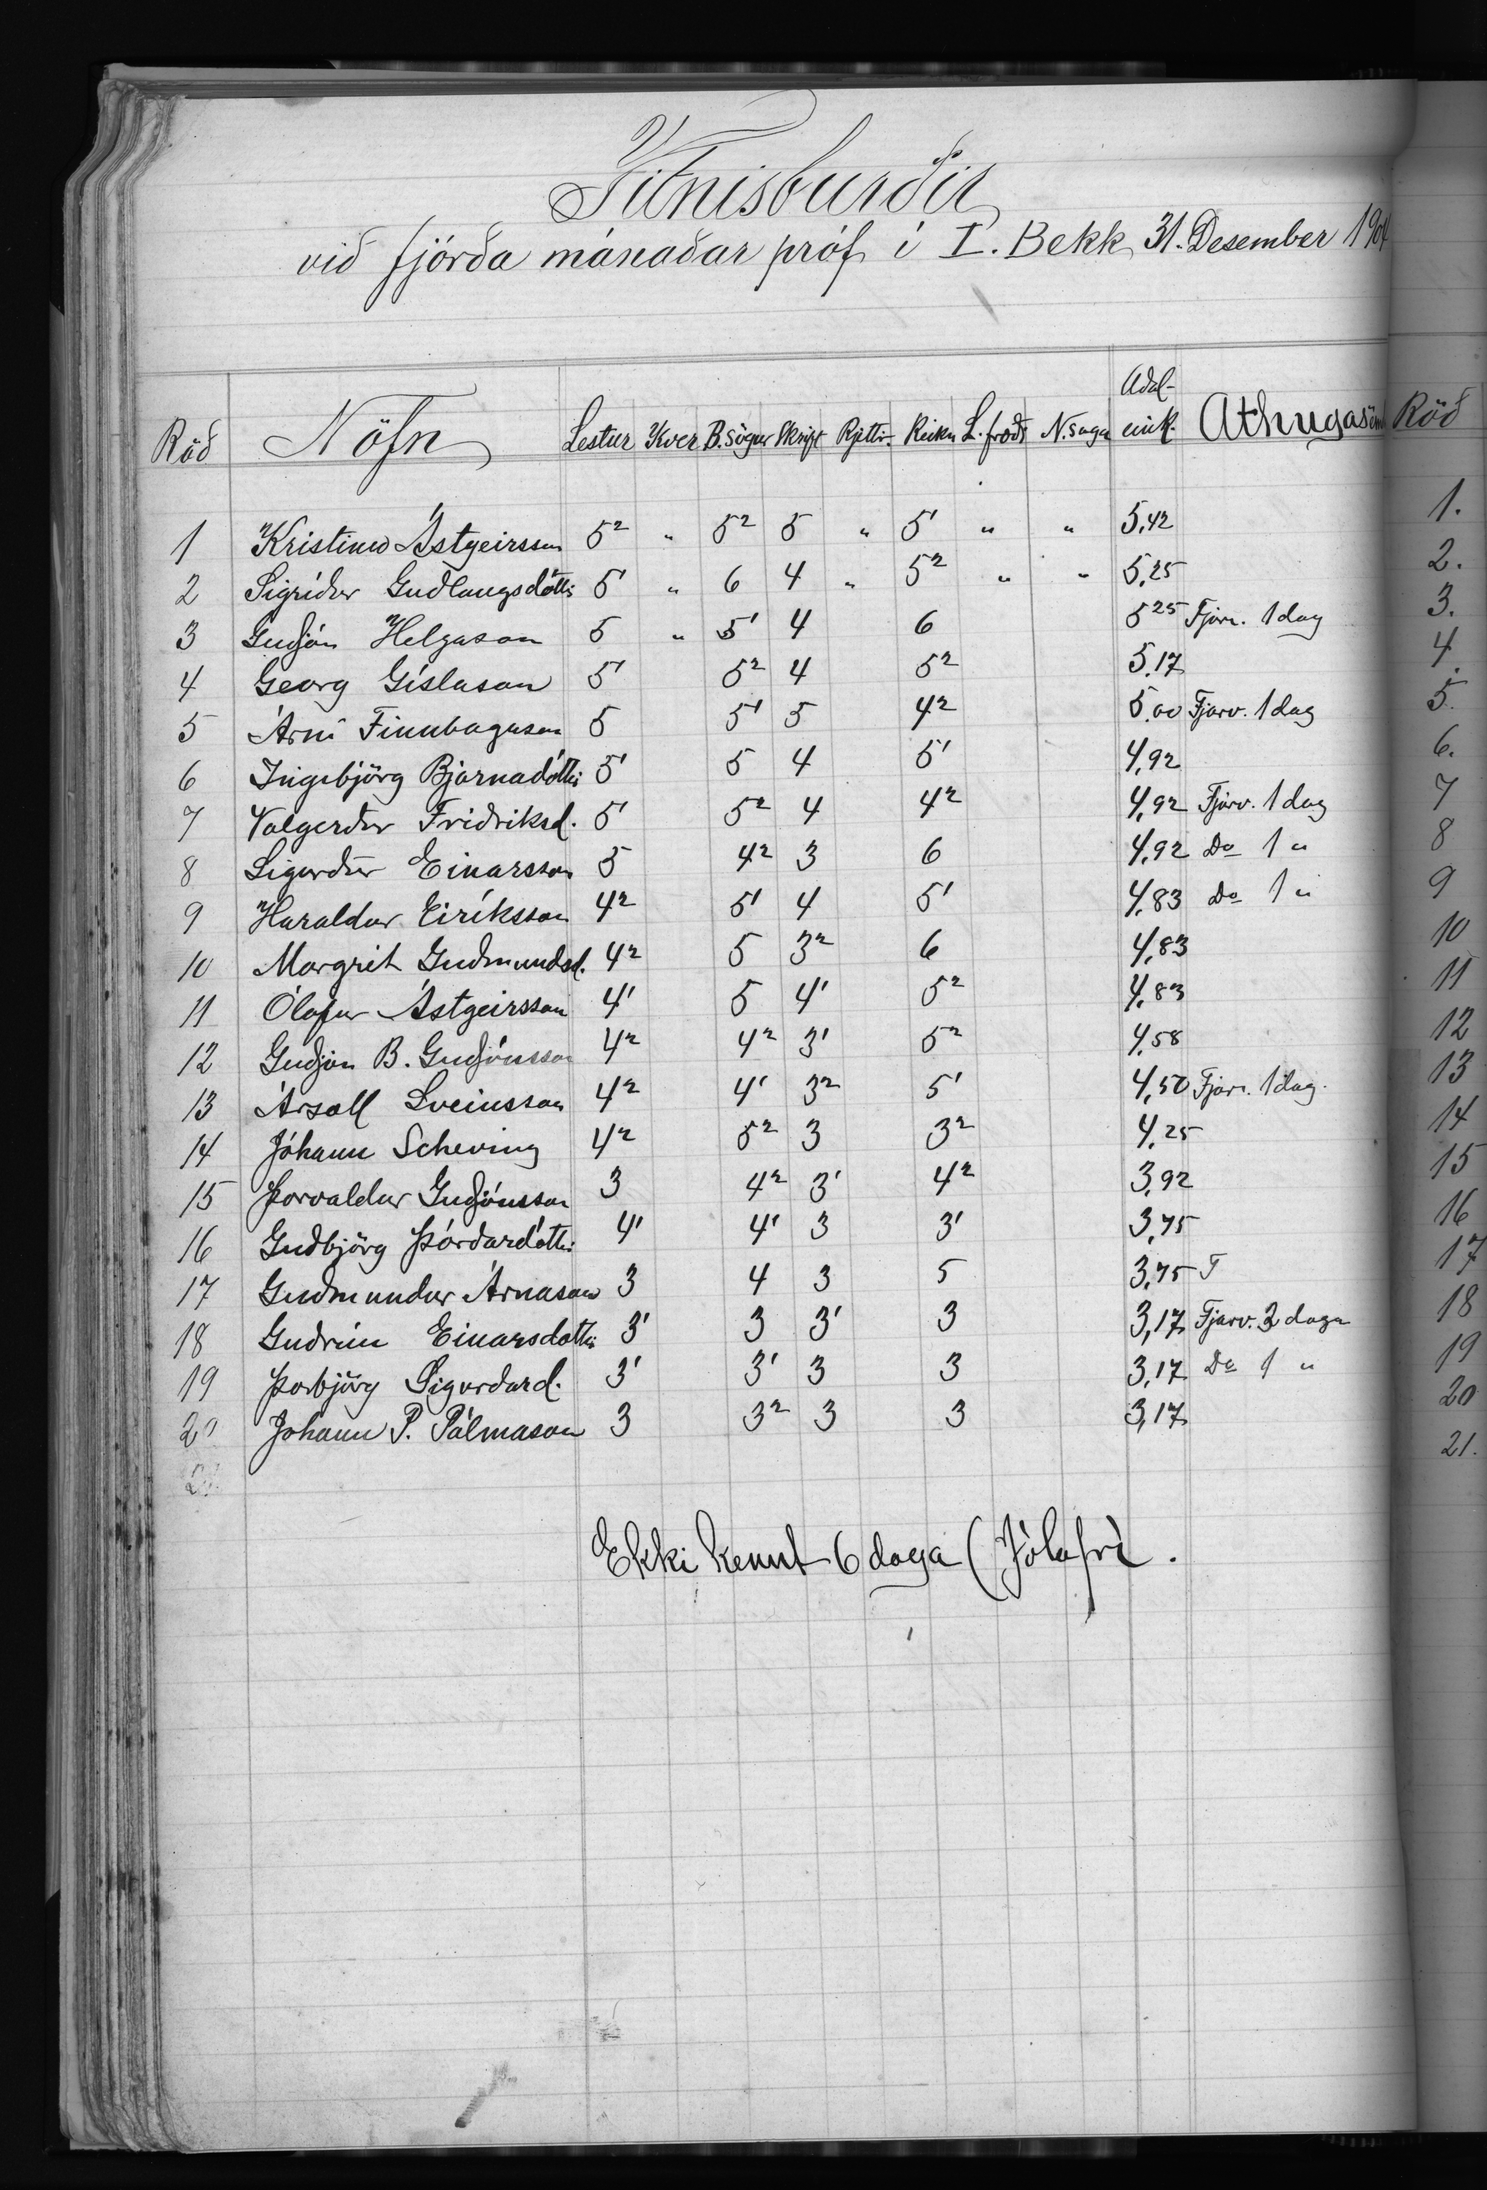 Vitnisburðir
við fjórða mánaðar próf í I. Bekk 31. Desember 1904
Röð Nöfn Lestur Kver B.sögur Skrift Rjettr. Reikn L.fræði N.saga Aðal-eink. Athugasem Röð
1 Kristinn Ástgeirsson 5² " 5² 5 " 5' " " 5,42 1.
2 Sigríður Guðlaugsdóttir 5' " 6 4 " 5² " " 5,25 2.
3 Guðjón Helgason 5 " 5' 4 6 5 25 Fjarv. 1 dag 3.
4 Georg Gíslason 5' 5² 4 5² 5.17 4.
5 Árni Finnbogason 5 5' 5 4² 5.00 Fjarv. 1 dag 5.
6 Ingibjörg Bjarnadóttir 5' 5 4 5' 4,92 6.
7 Valgerður Friðriksd. 5' 5² 4 4² 4,92 Fjarv. 1 dag 7
8 Sigurður Einarsson 5 4² 3 6 4,92 Do 1 " 8
9 Haraldur Eiríksson 4² 5' 4 5' 4,83 Do 1 " 9
10 Margrit Guðmundsd. 4² 5 3² 6 4,83 10
11 Ólafur Ástgeirsson 4' 5 4' 5² 4,83 11
12 Guðjón B. Guðjónsson 4² 4² 3' 5² 4,58 12
13 Ársæll Sveinsson 4² 4' 3² 5' 4,50 Fjarv. 1 dag. 13
14 Jóhann Scheving 4² 5² 3 3² 4,25 14
15 Þorvaldur Guðjónsson 3 4² 3' 4² 3,92 15
16 Guðbjörg Þórðardóttir 4' 4' 3 3' 3,75 16
17 Guðmundur Árnason 3 4 3 5 3,75 F 17
18 Guðrún Einarsdóttir 3' 3 3' 3 3,17 Fjarv. 3 daga 18
19 Þorbjörg Sigurðard. 3' 3' 3 3 3,17 Do 1 " 19
20 Jóhann P. Pálmason 3 3² 3 3 3,17 20
21. 21.
Ekki kennt 6 daga (Jólafrí.